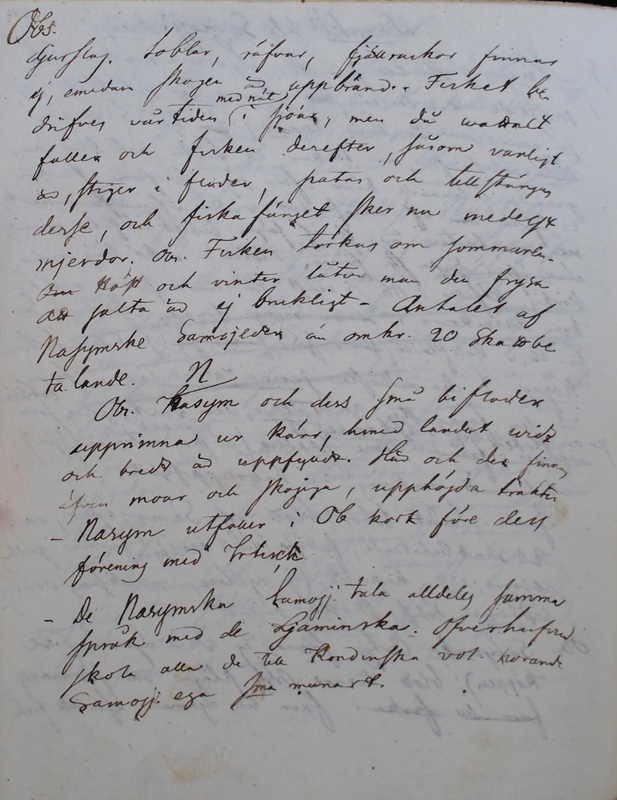 Obs.
Djurslag. Soblar, räfvar, fjällrackor finnas
ej, emedan skogen är uppbränd. Fisket be
drifves vårtiden med nät i sjöar, men då wattnet
faller och fisken derefter, såsom vanligt
är, stiger i floder, patas och tillstänges
desse, och fiskafänget sker nu medelst
mjerdor. Obs. Fisken torkas om sommaren.
Om Höst och vinter låter man den frysa
att salta är ej brukligt – Antalet af
Nasymske Samojeder är omkr. 20 Skattbe
talande.
N
Obs. Kasym och dess små bifloder
upprinna ur kärr, hvaraf landet widt
och bredt är uppfylldt. Här och der finnas
äfven moar och skogiga, upphöjda trakter
– Nasym utfaller i Ob kort före dess
förening med Irtisch
– De Nasymska Samojj. tala alldeles samma
språk med de Ljaminska. Öfverhufvud
skola alla de till Kondinska vol. hörande
Samojj. ega sma munart.